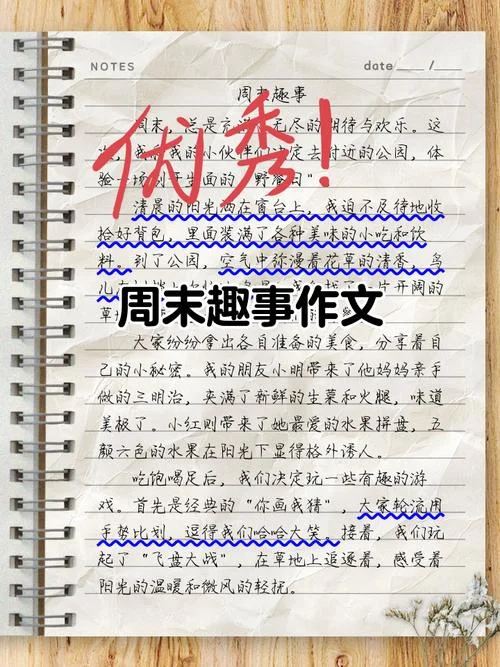 NOTES
date /
周末趣事
优秀!
周末,总是充 尽的期待与欢乐。这
我 我的小伙伴们决定去附近的公园,体
验一场别开生面的“野餐日”
清晨的阳光洒在窗台上,我迫不及待地收
拾好背包,里面装满了各种美味的小吃和饮
料。到了公园,空气中弥漫着花草的清香,鸟
儿在 片开阔的
周末趣事作文
草地
大家纷纷拿出各自准备的美食,分享着自
己的小秘密。我的朋友小明带来了他妈妈亲手
做的三明治,夹满了新鲜的生菜和火腿,味道
美极了。小红则带来了她最爱的水果拼盘,五
颜六色的水果在阳光下显得格外诱人。
吃饱喝足后,我们决定玩一些有趣的游
戏。首先是经典的“你画我猜”,大家轮流用
手势比划,逗得我们哈哈大笑。接着,我们玩
起了“飞盘大战”,在草地上追逐着,感受着
阳光的温暖和微风的轻抚。